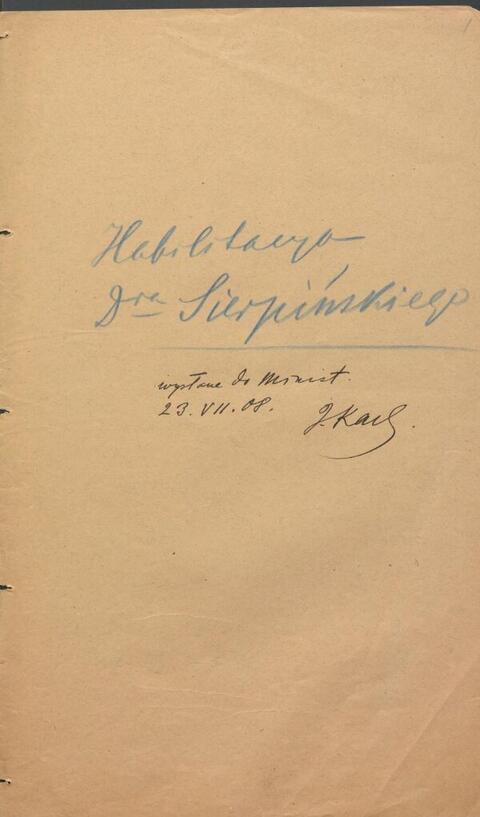 1
Habilitacya
Dra Sierpińskiego
wysłane do Minist.
23.VII.08.